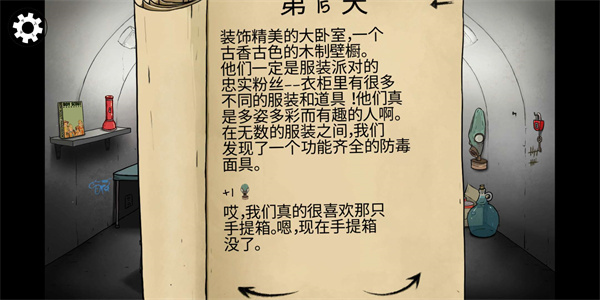 第15天
装饰精美的大卧室,一个
古香古色的木制壁橱。
他们一定是服装派对的
忠实粉丝--衣柜里有很多
不同的服装和道具!他们真
是多姿多彩而有趣的人啊。
在无数的服装之间,我们
发现了一个功能齐全的防毒
面具。
+1
哎,我们真的很喜欢那只
手提箱。嗯,现在手提箱
没了。